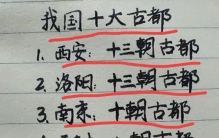 我国十大古都
1.西安：十三朝古都
2.洛阳：十三朝古都
3.南京：十朝古都